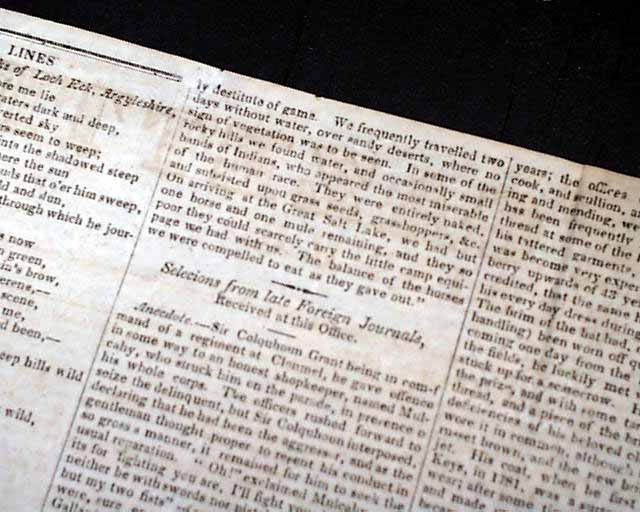 LINES
of Loch Eck, Argyleshire,
ore me lie
aters dark and deep,
verted sky
rs seem to weep;
nts the shadowed steep
here the sun
uds that o'er him sweep,
ld and dun,
through which he jour-
s now
n green,
ia's brow,
erene,—
scene,
me,
d been,—
eep hills wild
wild,
ly destitute of game. We frequently travelled two
days without water, over sandy deserts, where no
sign of vegetation was to be seen. In some of the
rocky hills we found water, and occasionally small
bands of Indians, who appeared the most miserable
of the human race. They were entirely naked,
and subsisted upon grass seeds, grasshoppers, &c.
On arriving at the Great Salt Lake, we had but
one horse and one mule remaining, and they so
poor they could scarcely carry the little camp equi-
page we had with us. The balance of the horses
we were compelled to eat as they gave out."
Selecions from late Foreign Journals,
Received at this Office.
Anecdote.—Sir Colquhoun Grant being in com-
mand of a regiment at Clonmel, he gave offence
in some way to an honest shopkeeper, named Mul-
cahy, who struck him on the parade, in presence o
his whole corps. The officers rushed forward to
seize the delinquent, but Sir Colquhoun interposed,
declaring that he had been the aggressor, and as the
gentleman thought proper to resent his conduct in
so gross a manner, it remained for him to seek the
usual reparation. "Oh!" exclaimed Mulcahy,
its for "gating you are, I'll fight you
neither be with swords nor
but my two fists"
were, sure
years; the offices
cook, and scullion,
ing and mending, we
has been frequently
thread at some of the
his tattered garments
was become very
berry upwards of 43 ye
credited, that the same
his every day dress during
The brim of the hat had,
handling) been worn off
coming one day from the
the fields, he luckily met
stuck up for a scarecrow.
the prize, and with some
thread, and a piece of the
deficiencies of his beloved
wore it in common, although
russet brown, and the new brim
jet. His coat, when he first
Keys, in 1781, was a
wear; after some time
and made